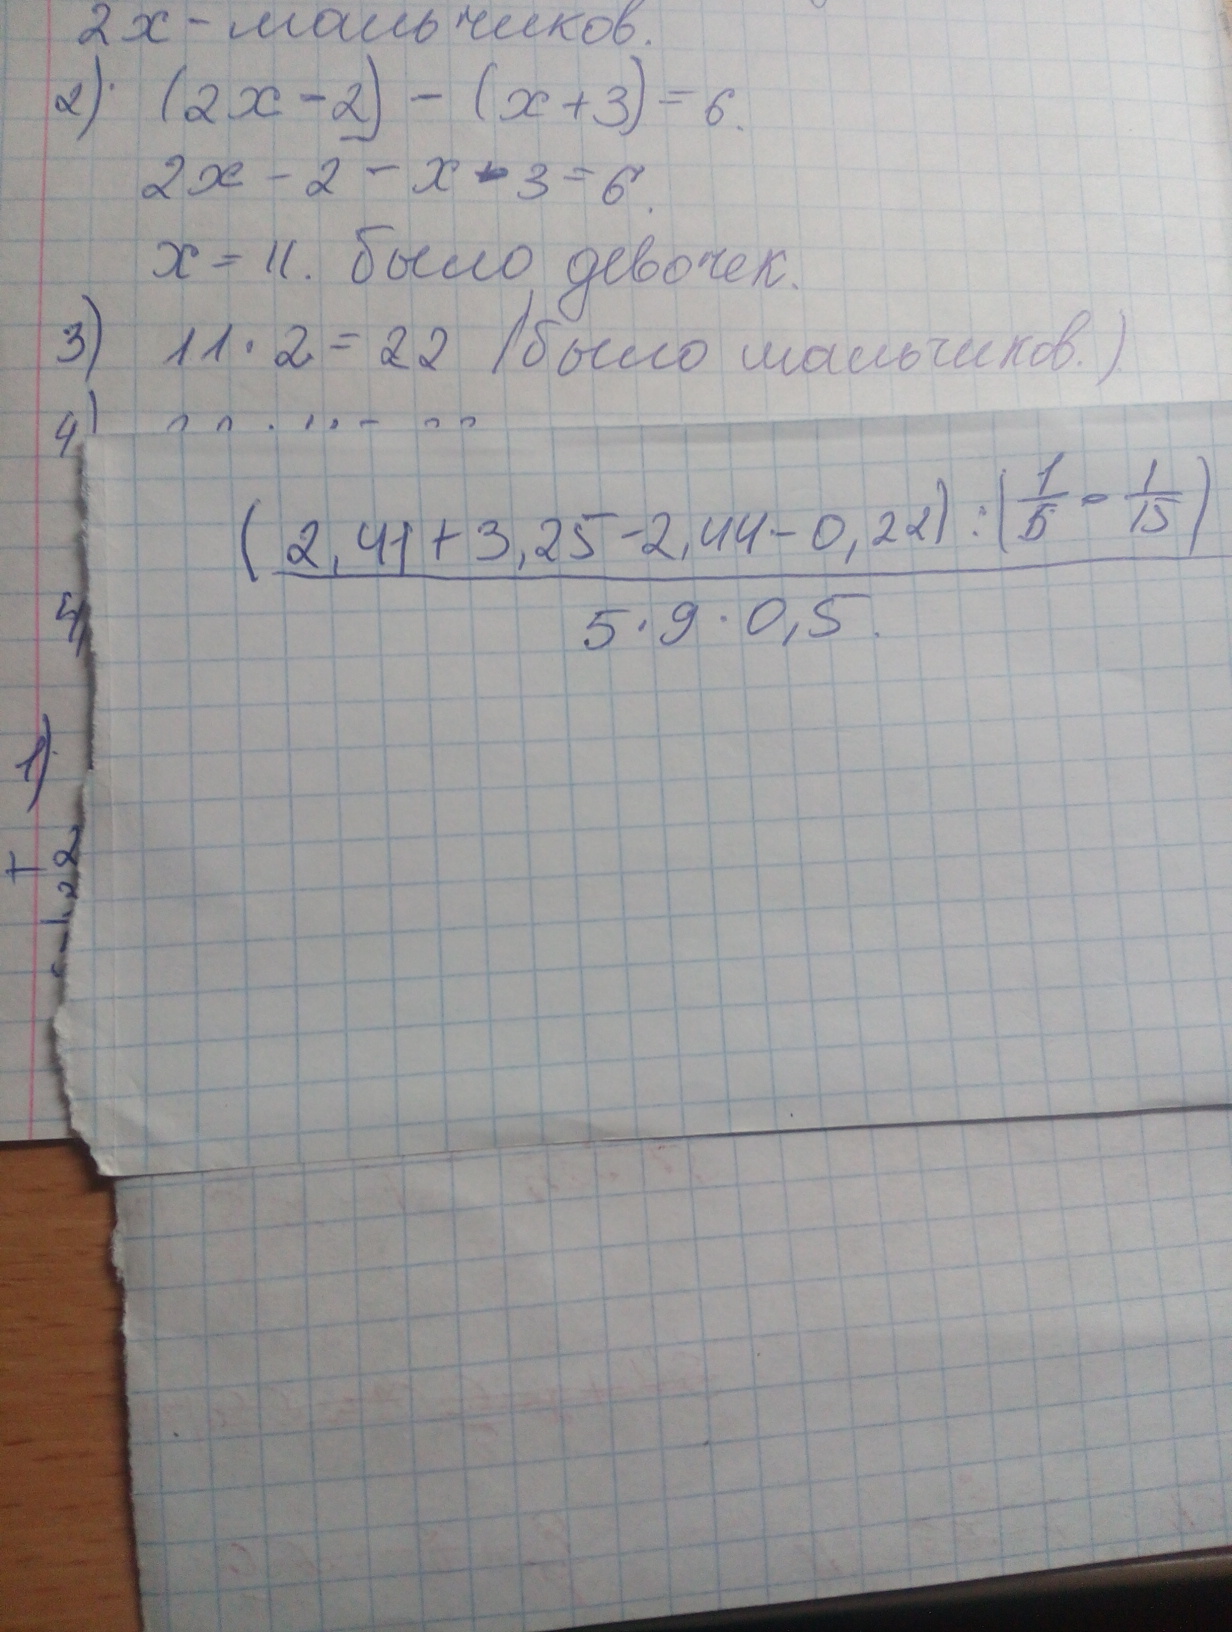 2x - мальчиков.
2) (2x - 2) - (x + 3) = 6.
2x - 2 - x - 3 = 6.
x = 11. было девочек.
3) 11 · 2 = 22 (было мальчиков.)
4)
(2,41 + 3,25 - 2,44 - 0,22) : (1/5 - 1/15)
5 · 9 · 0,5.
1)